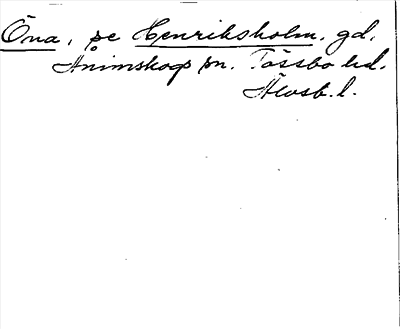 Öna, se Henriksholm. gd.
Ånimskog sn. Tössbo hd.
Älvsb. l.